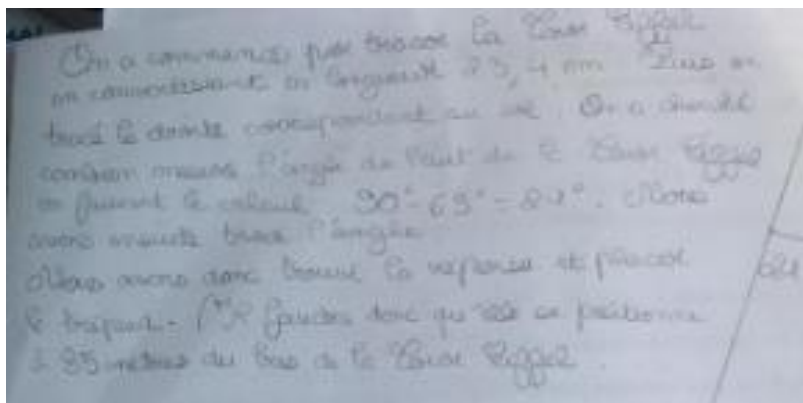 On a commencé par tracer la Tour Eiffel
en convertissant en longueur 23,4 cm Puis on
tracé la droite correspondant au sol. On a
combien mesure l'angle du haut de la Tour Eiffel
en faisant le calcul 90° - 69° = 21°. Nous
avons ensuite tracé l'angle.
Nous avons donc trouvé la réponse et placé
le trépied. Il faudra donc qu'elle se positionne
à 85 mètres du bas de la Tour Eiffel.